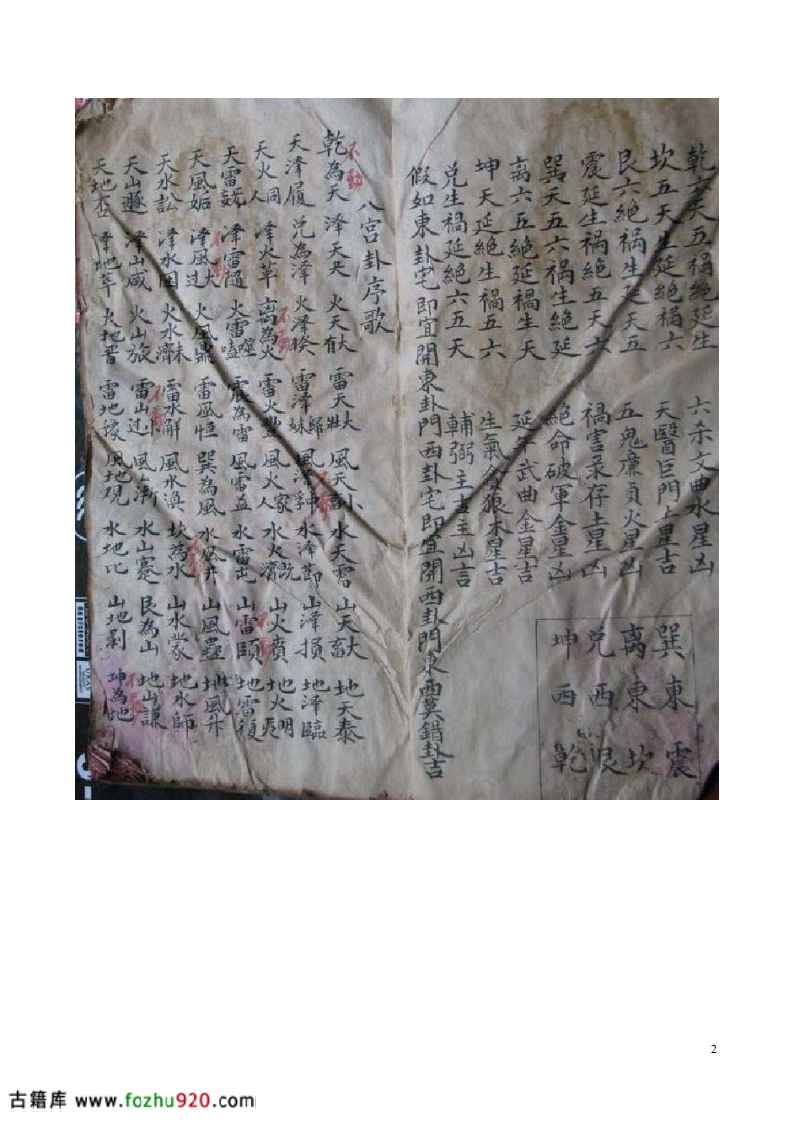 乾六天五禍絶延生
坎五天生延絶禍六
艮六絶禍生延天五
震延生禍絶五天六
巽天五六禍生絶延
离六五絶延禍生天
坤天延絶生禍五六
兑生禍延絶六五天
六杀文曲水星凶
天醫巨門土星吉
五鬼廉貞火星凶
禍害录存土星凶
絶命破軍金星凶
延年武曲金星吉
生氣貪狼木星吉
輔弼主吉主凶言
假如東卦宅即宜開東卦門西卦宅即宜開西卦門東西莫錯卦吉
巽東震
离東坎
兑西艮
坤西乾
八宫卦序歌
乾為天 泽天夬 火天大有 雷天大壮 風天小畜 水天需 山天大畜 地天泰
天泽履 兑為泽 火泽睽 雷泽歸妹 風泽中孚 水泽節 山泽損 地泽臨
天火同人 泽火革 离為火 雷火豐 風火家人 水火既濟 山火賁 地火明夷
天雷无妄 泽雷隨 火雷噬嗑 震為雷 風雷益 水雷屯 山雷頤 地雷復
天風姤 泽風大过 火風鼎 雷風恒 巽為風 水風井 山風蠱 地風升
天水訟 泽水困 火水未濟 雷水解 風水渙 坎為水 山水蒙 地水師
天山遯 泽山咸 火山旅 雷山小过 風山漸 水山蹇 艮為山 地山謙
天地否 泽地萃 火地晋 雷地豫 風地观 水地比 山地剥 坤為地
不動
2
古籍库 www.fozhu920.com